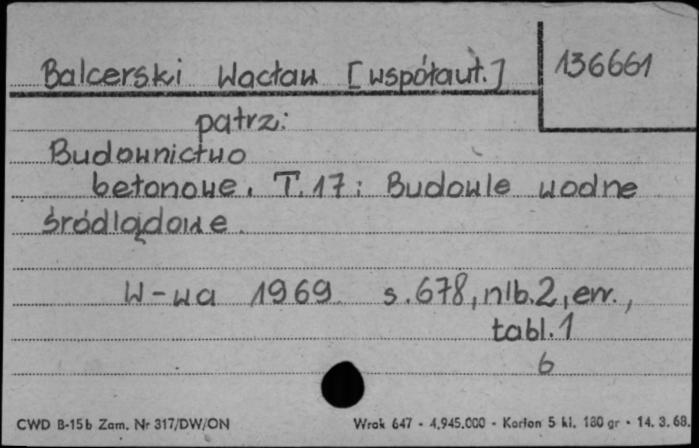 Balcerski Wacław [współaut.] 136661
patrz:
Budownictwo
betonowe. T.17: Budowle wodne
śródlądowe.
W-wa 1969. s.678, nlb.2, err.,
tabl.1
6
CWD B-15b Zam. Nr 317/DW/ON Wrok 647 - 4.945.000 - Karton 5 kl. 180 gr - 14. 3. 68.